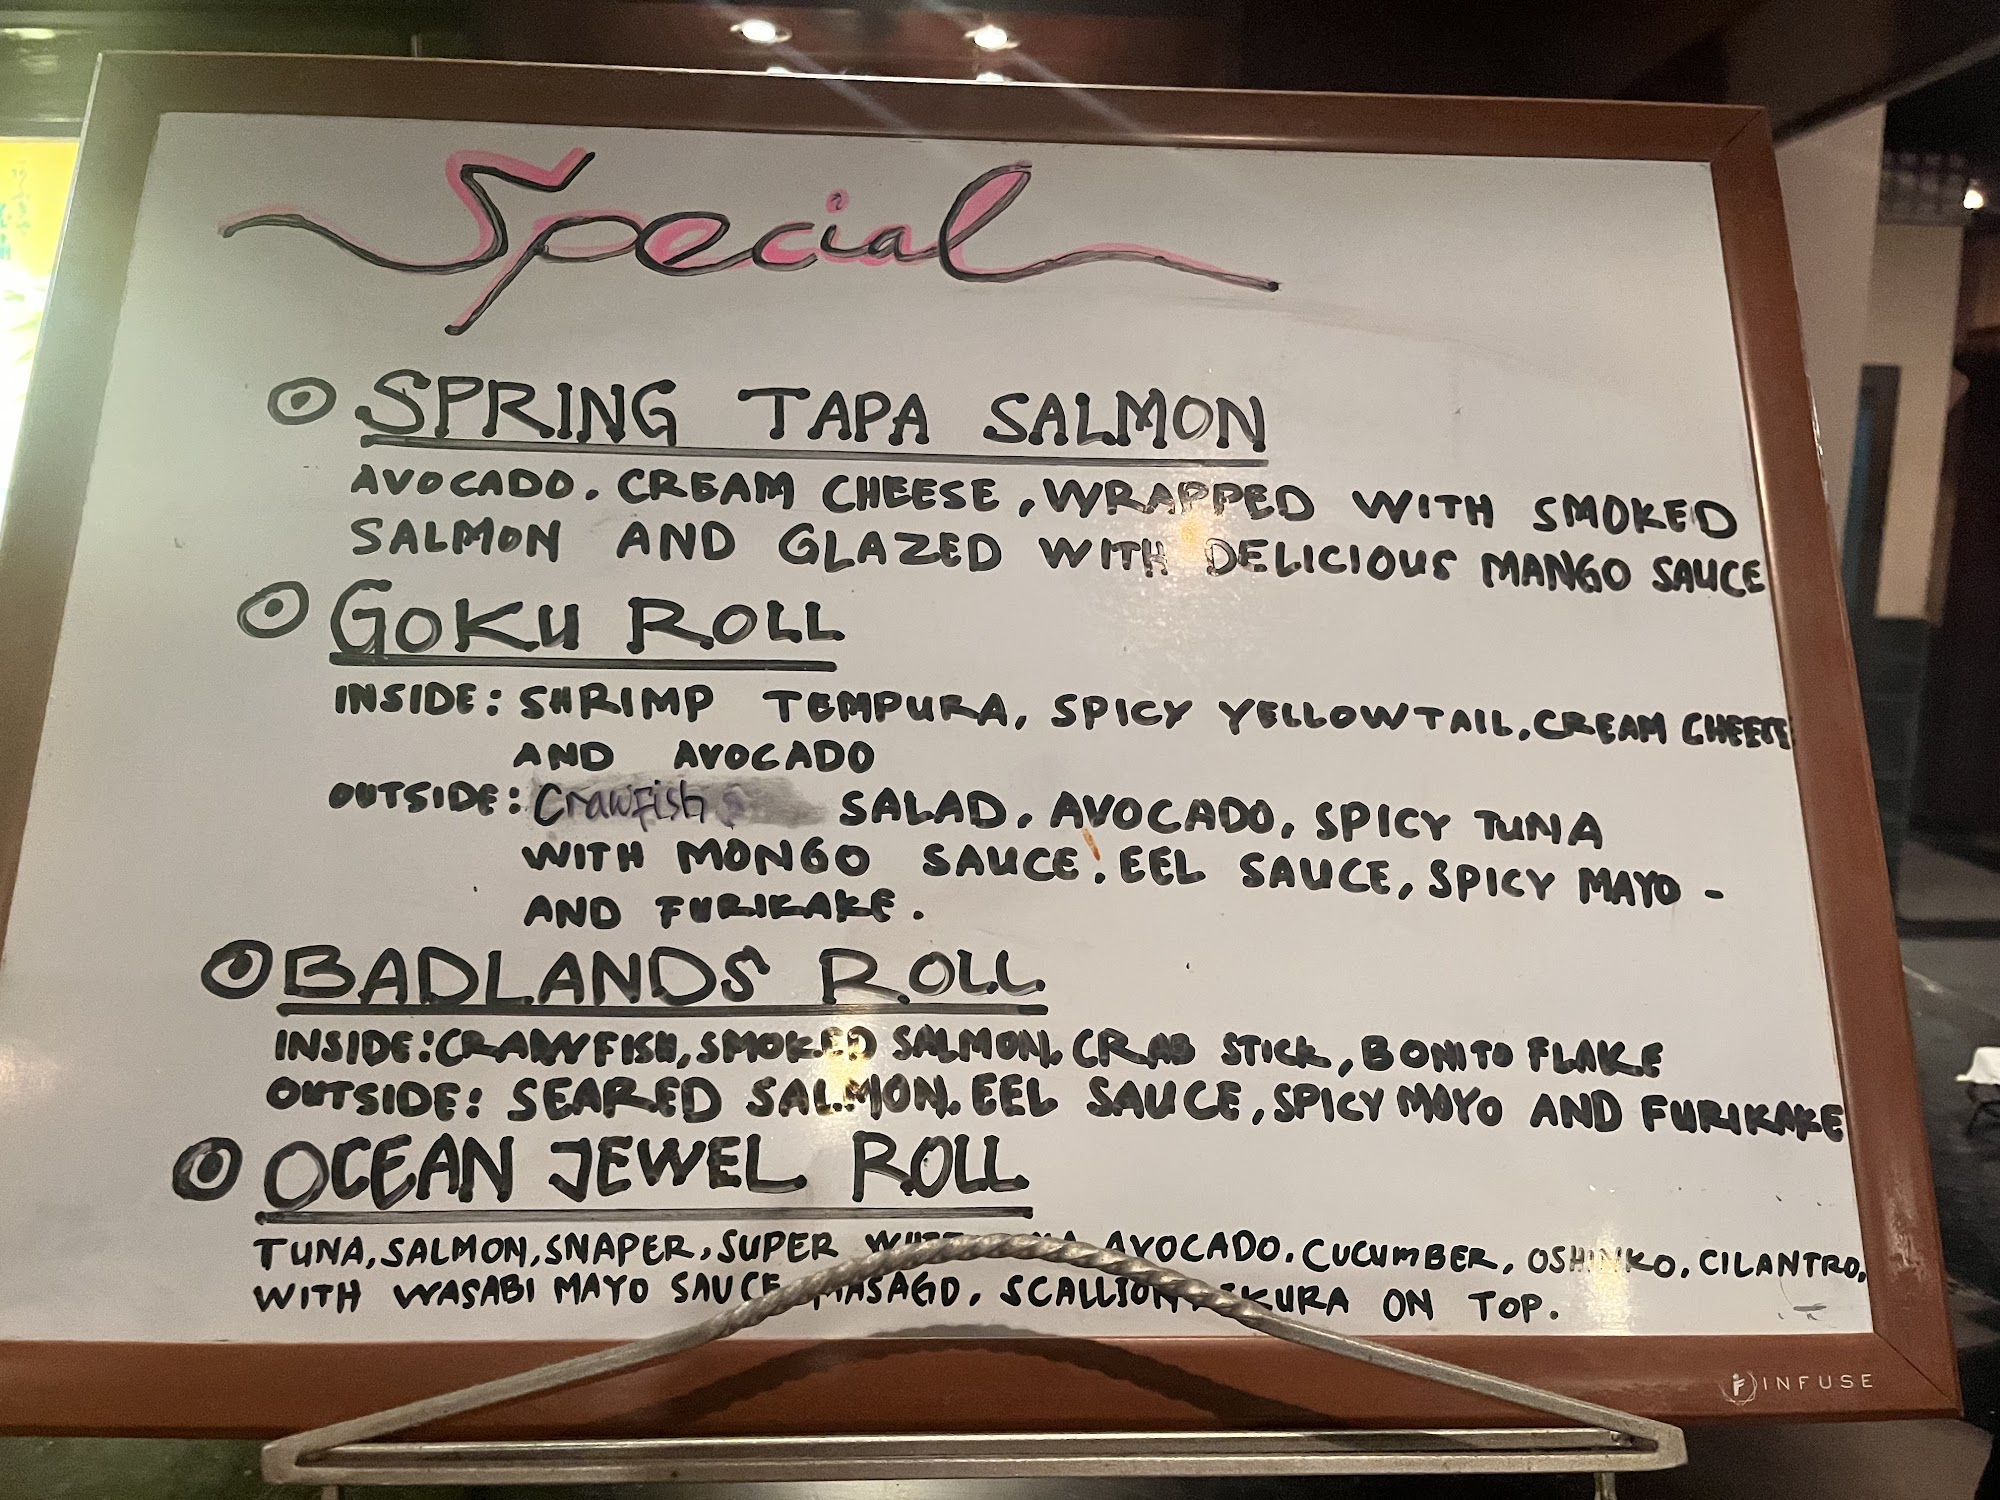 Special
SPRING TAPA SALMON
AVOCADO. CREAM CHEESE, WRAPPED WITH SMOKED
SALMON AND GLAZED WITH DELICIOUS MANGO SAUCE
GOKU ROLL
INSIDE: SHRIMP TEMPURA, SPICY YELLOWTAIL, CREAM CHEESE
AND AVOCADO
OUTSIDE: Crawfish SALAD, AVOCADO, SPICY TUNA
WITH MONGO SAUCE, EEL SAUCE, SPICY MAYO -
AND FURIKAKE.
BADLANDS ROLL
INSIDE: CRAWFISH, SMOKED SALMON, CRAB STICK, BONITO FLAKE
OUTSIDE: SEARED SALMON, EEL SAUCE, SPICY MAYO AND FURIKAKE
OCEAN JEWEL ROLL
TUNA, SALMON, SNAPER, SUPER AVOCADO, CUCUMBER, OSHINKO, CILANTRO,
WITH WASABI MAYO SAUCE MASAGO, SCALLION ON TOP.
INFUSE